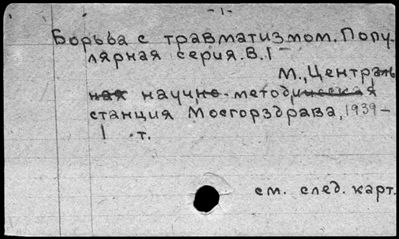 -1-
Борьба с травматизмом. Попу-
лярная серия. В.I-
М., Централь
ная научно-методическая
станция Мосгорздрава, 1939-
1 т.
см. след. карт.